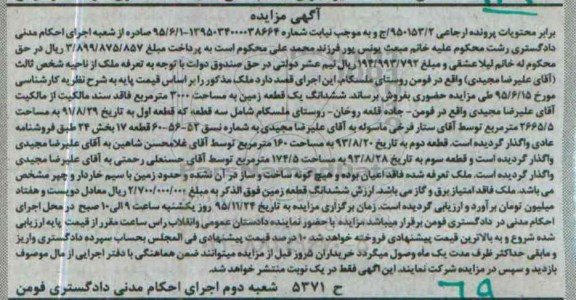 آگهی مزایده
برابر محتویات پرونده ارجاعی ۹۵۰۱۵۳/۲/ج و به موجب نیابت شماره ۱۳۹۵۰۳۴۰۰۰۰۳۸۶۶۴-۹۵/۶/۱ صادره از شعبه اجرای احکام مدنی
دادگستری رشت محکوم علیه خانم مبعث یونس پور فرزند محمد علی محکوم است به پرداخت مبلغ ۳/۸۹۹/۸۷۵/۸۵۷ ریال در حق
محکوم له خانم لیلا عشقی و مبلغ ۱۹۴/۹۹۳/۷۹۲ ریال نیم عشر دولتی در حق صندوق دولت با توجه به تعرفه ملک از ناحیه شخص ثالث
(آقای علیرضا مجیدی) واقع در فومن روستای ملسکام، این اجرای قصد دارد ملک مذکور را بر اساس قیمت پایه به شرح نظریه کارشناسی
مورخ ۹۵/۶/۱۵ طی مزایده حضوری بفروش برساند. ششدانگ یک قطعه زمین به مساحت ۳۰۰۰ مترمربع فاقد سند مالکیت از مالکیت
آقای علیرضا مجیدی واقع در فومن - جاده قلعه رودخان- روستای ملسکام شامل سه قطعه که قطعه اول به تاریخ ۹۱/۸/۲۹ به مساحت
۲۶۶۵/۵ مترمربع توسط آقای ستار فرخی ماسوله به آقای علیرضا مجیدی به شماره نسق ۵۳-۵۶-۶۰ قطعه ۱۷ بخش ۲۴ طبق فروشنامه
عادی واگذار گردیده است. قطعه دوم به تاریخ ۹۳/۸/۲۰ به مساحت ۱۶۰ مترمربع توسط آقای غلامحسن شاهین به آقای علیرضا مجیدی
واگذار گردیده است و قطعه سوم به تاریخ ۹۳/۸/۲۸ به مساحت ۱۷۴/۵ مترمربع توسط آقای حسنعلی رحمتی به آقای علیرضا مجیدی
واگذار گردیده است. ملک تعرفه شده فاقد اعیان بوده و هیچ گونه ساخت و ساز در آن نشده و حدود زمین با سیم خاردار و چپر مشخص
می باشد. ملک فاقد امتیاز برق و گاز می باشد. ارزش ششدانگ قطعه زمین فوق الذکر به مبلغ ۲/۷۰۰/۰۰۰/۰۰۰ ریال معادل دویست و هفتاد
میلیون تومان برآورد و ارزیابی گردیده است. زمان برگزاری مزایده به تاریخ ۹۵/۱۱/۲۴ روز یکشنبه ساعت ۹ الی ۱۰ صبح در محل اجرای
احکام مدنی در دادگستری فومن برقرار میباشد مزایده با حضور نماینده دادستان عمومی وانقلاب راس ساعت مقرر از قیمت پایه ارزیابی
شده شروع و به بالاترین قیمت پیشنهادی فروخته خواهد شد. ۱۰ درصد قیمت پیشنهادی فی المجلس بحساب سپرده دادگستری واریز
و مابقی حداکثر ظرف مدت یک ماه وصول میگردد خریداران ۵ روز قبل از مزایده میتوانند ضمن هماهنگی با دفتر اجرایی از مال موصوف
بازدید و سپس در مزایده شرکت نمایند. این آگهی فقط در یک نوبت منتشر خواهد شد.
ح ۵۳۷۱ شعبه دوم اجرای احکام مدنی دادگستری فومن
۶۹